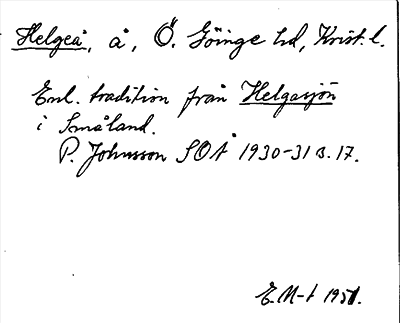 Helgeå, å, Ö. Göinge hd, Krist. l.
Enl. tradition från Helgasjön
i Småland.
P. Johnsson SOÅ 1930-31 s. 17.
E.M-t 1951.